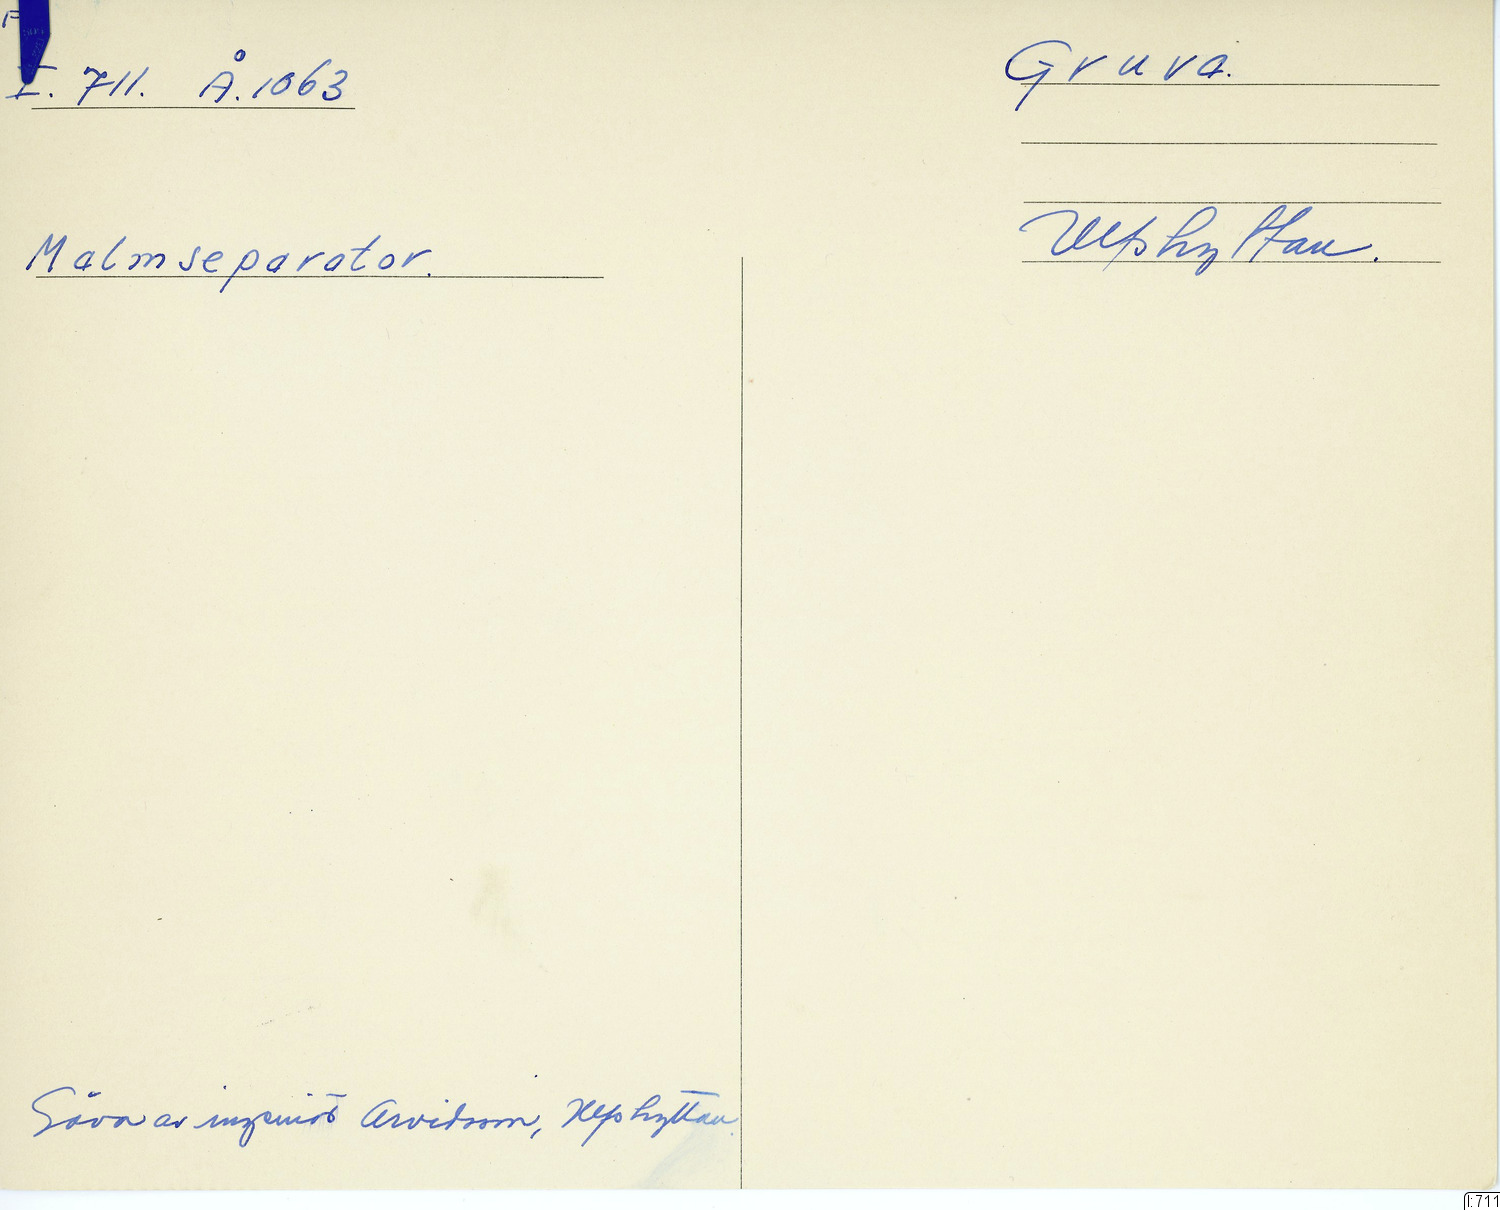 I. 711. Å. 1063
Gruva.
Ulfshyttan.
Malmseparator.
Gåva av ingeniör Arvidsson, Ulfshyttan.
I:711